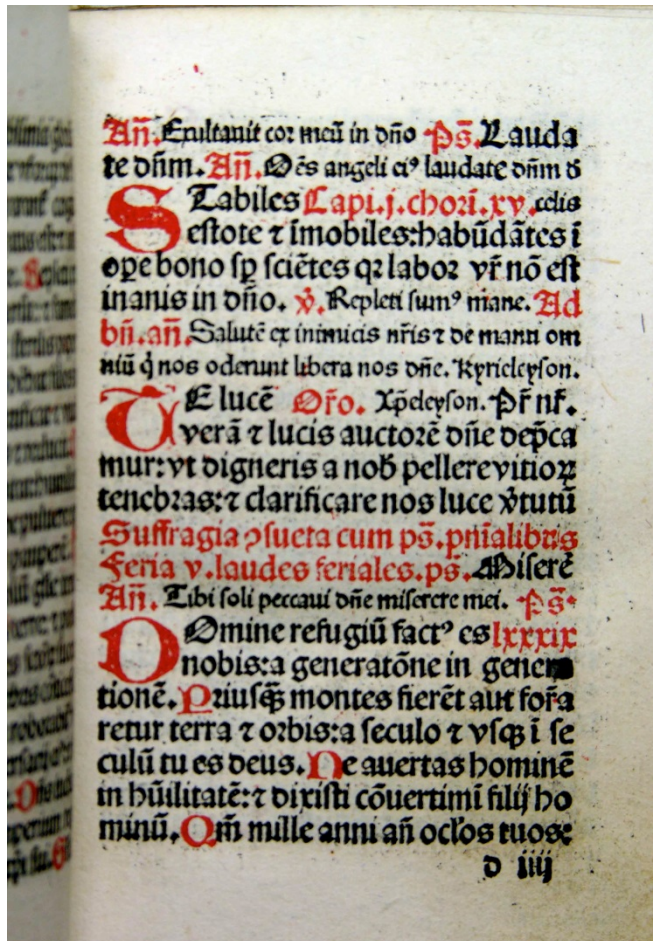 Añ. Exultauit cor meū in dño Ps̄. Lauda
te dñm. Añ. Oēs angeli ei⁹ laudate dñm d̄
STabiles Capi. j. chorī. xv. celis
estote ⁊ īmobiles: habūdātes ī
oꝑe bono sꝑ sciētes qꝛ laboꝛ vr̄ nō est
inanis in dño. v̄. Repleti sum⁹ mane. Ad
bñ. añ. Salutē ex inimicis nr̄is ⁊ de manu om
niū q̇ nos oderunt libera nos dñe. Kyrieleyson.
TE lucē Oŕo. Xp̄eleyson. Pr̄ nr̄.
verā ⁊ lucis auctorē dñe dep̄ca
mur: vt digneris a nob̄ pellere vitioꝝ
tenebras: ⁊ clarificare nos luce v̓tutū
Suffragia ꝯsueta cum ps̄. pnīalibus
Feria v. laudes feriales. ps̄. Miserē
Añ. Tibi soli peccaui dñe miserere mei. Ps̄.
DOmine refugiū fact⁹ es lxxxix
nobis: a generatōne in genera
tionē. Priusq̄ꝫ montes fierēt aut foꝛma
retur terra ⁊ oꝛbis: a seculo ⁊ vsqꝫ ī se
culū tu es deus. Ne auertas hominē
in hūilitatē: ⁊ dixisti cōuertimī filij ho
minū. Qm̄ mille anni añ ocl̓os tuos:
d iiij